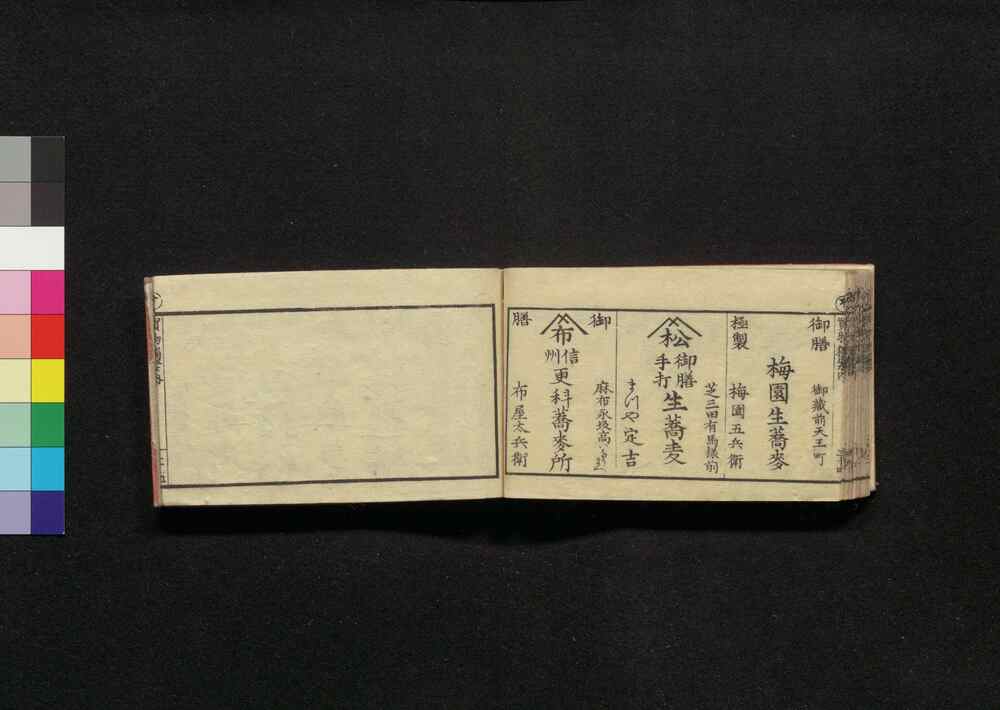 御膳
御蔵前天王町
梅園生蕎麥
極製
梅園五兵衛
芝三田有馬様前
松
御膳
手打
生蕎麦
まつや定吉
御
麻布永坂高
布
信州
更科蕎麥所
膳
布屋太兵衛